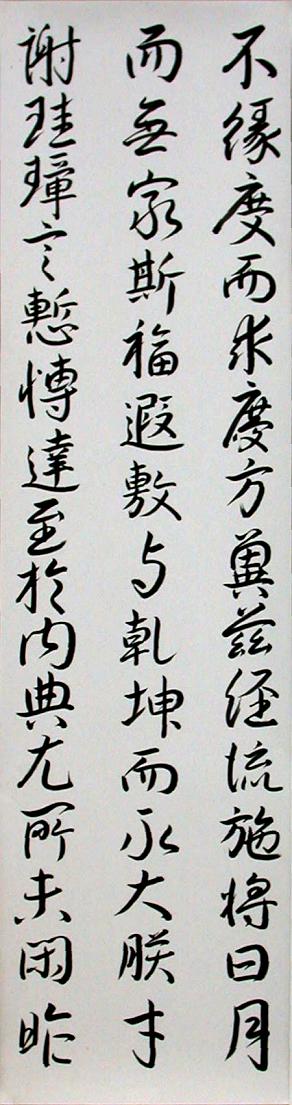 不緣慶而求慶方冀茲經流施將日月
而無窮斯福遐敷与乾坤而永大朕才
謝珪璋言慙愽達至於內典尤所未閑昨